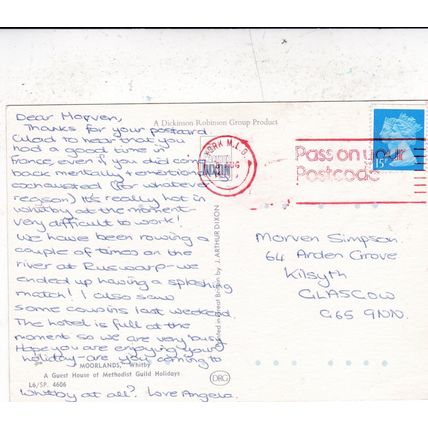 A Dickinson Robinson Group Product
Dear Morven,
Thanks for your postcard
Glad to hear that you
had a good time in
France, even if you did come
back mentally & emotionally
exhausted (for whatever
reason) It's really hot in
Whitby at the moment -
very difficult to work!
We have been rowing a
couple of times on the
river at Ruswarp - we
ended up having a splashing
match! I also saw
some cousins last weekend.
The hotel is full at the
moment so we are very busy
Hope you are enjoying your
holiday - are you coming to
MOORLANDS, Whitby
A Guest House of Methodist Guild Holidays
L6/SP. 4606
Whitby at all? Love Angela.
Printed in Great Britain by J. ARTHUR DIXON
DRG
YORK M.L.O.
AUG
Pass on your
Postcode
15
Morven Simpson,
64 Arden Grove
Kilsyth
GLASGOW
G65 9NN.